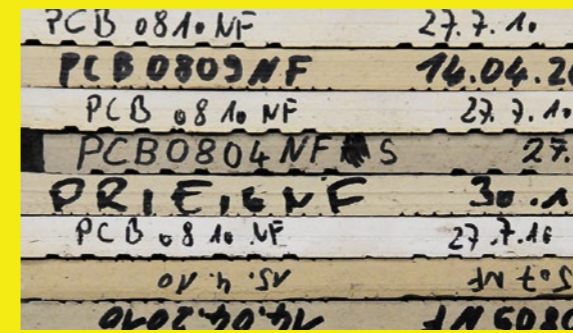 PCB 0810 NF 27.7.10
PCB 0809 NF 14.04.20
PCB 0810 NF 27.7.10
PCB0804 NF S 27.
30.1
PCB 0810 NF 27.7.10
15.4.10 5.07 NF
14.04.2010 0809 NF